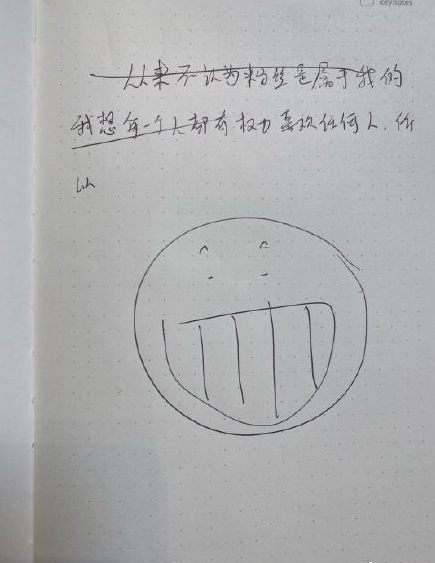 keynotes
从来不认为粉丝是属于我的
我想每一个人都有权力喜欢任何人,所
以